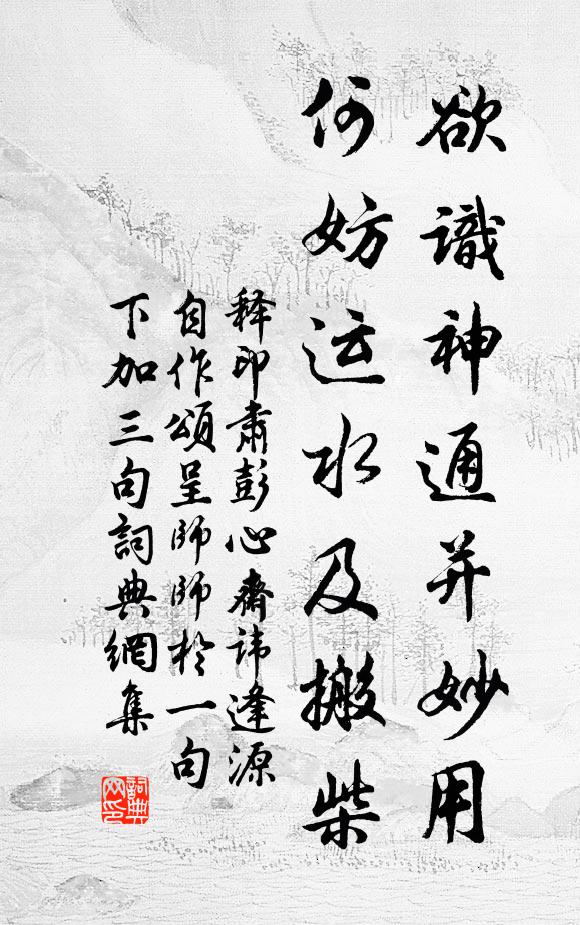 欲識神通并妙用
何妨运水及搬柴
释印肃彭心齋諱逢源
自作頌呈師師於一句
下加三句詞典網集
詞典网印